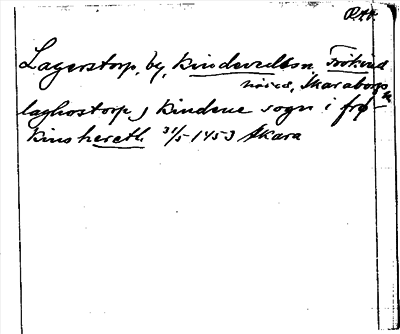 RAP.
Lagerstorp, by, Kindeveds sn, Frökind
härad, Skaraborgs
laghostorp, Kindene sogn i frø-
kinshereth 31/5-1453 Skara